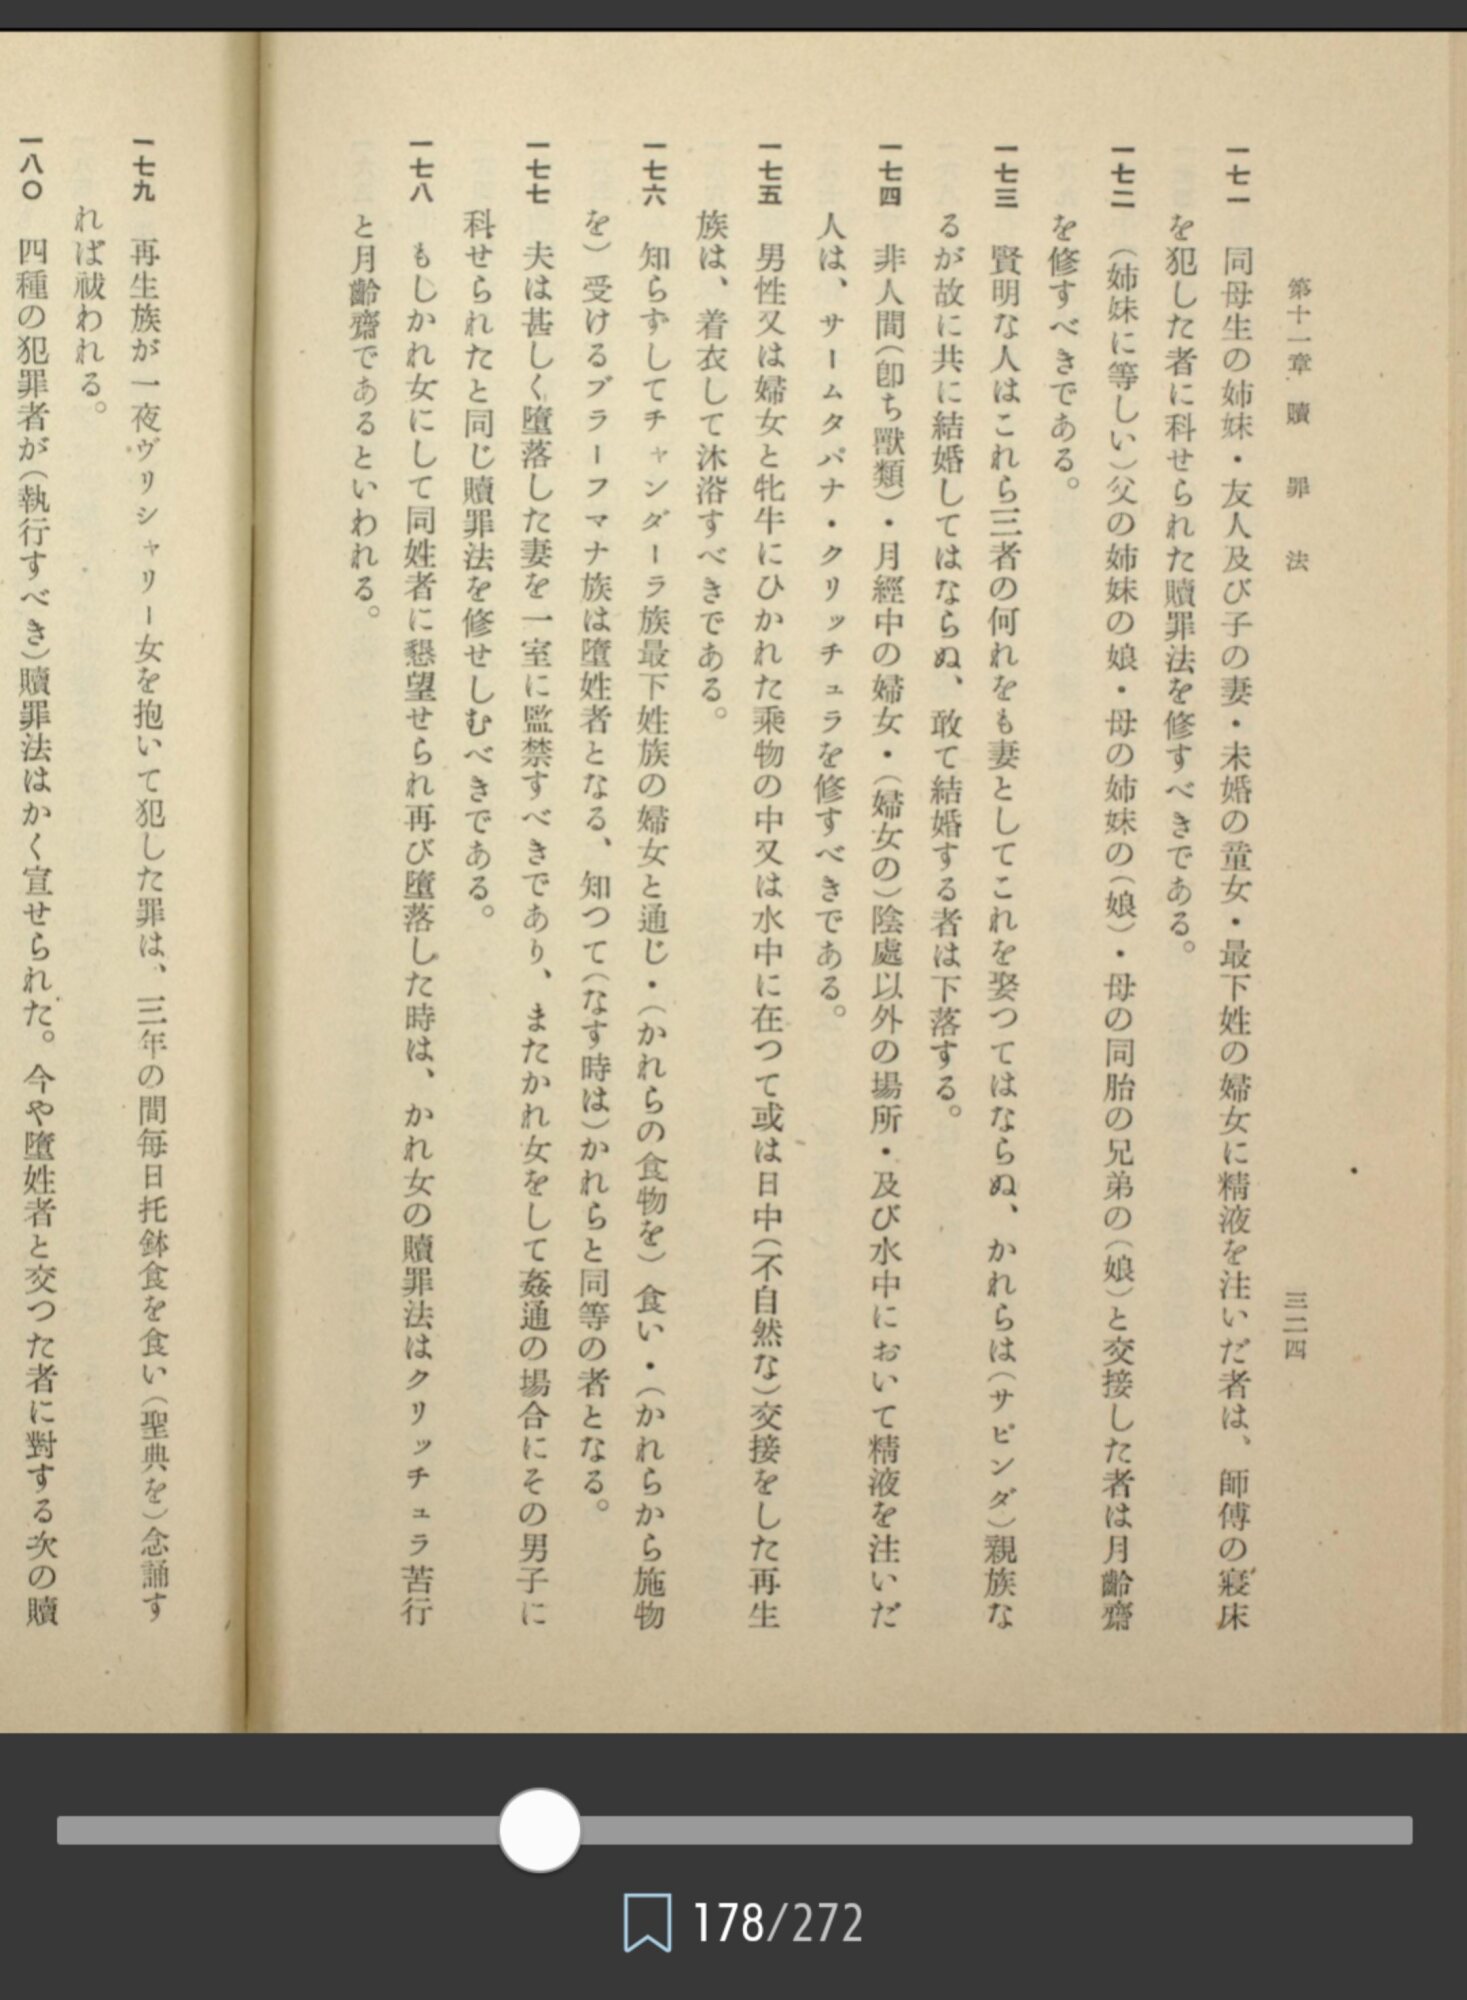 第十一章 贖罪法
三二四
一七一 同母生の姉妹・友人及び子の妻・未婚の童女・最下姓の婦女に精液を注いだ者は、師傅の寢床
を犯した者に科せられた贖罪法を修すべきである。
一七二 (姉妹に等しい)父の姉妹の娘・母の姉妹の(娘)・母の同胞の兄弟の(娘)と交接した者は月齡齋
を修すべきである。
一七三 賢明な人はこれら三者の何れをも妻としてこれを娶つてはならぬ、かれらは(サピンダ)親族な
るが故に共に結婚してはならぬ、敢て結婚する者は下落する。
一七四 非人間(卽ち獸類)・月經中の婦女・(婦女の)陰處以外の場所・及び水中において精液を注いだ
人は、サームタパナ・クリッチュラを修すべきである。
一七五 男性又は婦女と牝牛にひかれた乘物の中又は水中に在つて或は日中(不自然な)交接をした再生
族は、着衣して沐浴すべきである。
一七六 知らずしてチャンダーラ族最下姓族の婦女と通じ・(かれらの食物を)食い・(かれらから施物
を)受けるブラーフマナ族は墮姓者となる、知つて(なす時は)かれらと同等の者となる。
一七七 夫は甚しく墮落した妻を一室に監禁すべきであり、またかれ女をして姦通の場合にその男子に
科せられたと同じ贖罪法を修せしむべきである。
一七八 もしかれ女にして同姓者に懇望せられ再び墮落した時は、かれ女の贖罪法はクリッチュラ苦行
と月齡齋であるといわれる。
一七九 再生族が一夜ヴリシャリー女を抱いて犯した罪は、三年の間每日托鉢食を食い(聖典を)念誦す
れば祓われる。
一八〇 四種の犯罪者が(執行すべき)贖罪法はかく宣せられた。今や墮姓者と交つた者に對する次の贖
178/272